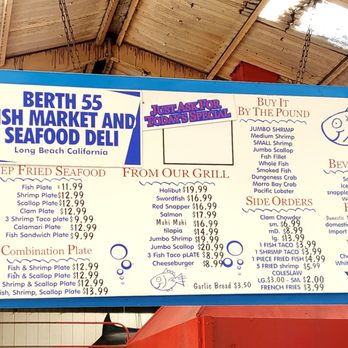 BERTH 55
ISH MARKET AND
SEAFOOD DELI
Long Beach California
JUST ASK FOR
TODAY'S SPECIAL
BUY IT
BY THE POUND
JUMBO SHRIMP
Medium Shrimp
SMALL Shrimp
Jumbo Scallop
Fish Fillet
Whole Fish
Smoked Fish
Dungenes Crab
Morro Bay Crab
Pacific Lobster
EP FRIED SEAFOOD
Fish Plate $11.99
Shrimp Plate $12.99
Scallop Plate $12.99
Clam Plate $12.99
3 Shrimp Taco Plate $9.99
Calamari Plate $12.99
Fish Sandwich Plate $9.99
Combination Plate
Fish & Shrimp Plate $12.99
Fish & Scallop Plate $12.99
Shrimp & Scallop Plate $12.99
ish, Shrimp, Scallop Plate $13.99
FROM OUR GRILL
Halibut $19.99
Swordfish $16.99
Red Snapper $16.99
Salmon $17.99
Mahi Mahi $16.99
tilapia $14.99
Jumbo Shrimp $19.99
Jumbo Scallop $20.99
3 Fish Taco PLATE $8.99
Cheeseburger $8.99
Garlic Bread $3.50
SIDE ORDERS
Clam Chowder
sm. $6.99
mD. $8.99
lg. $13.99
1 FISH TACO $3.99
1 SHRIMP TACO $3.99
1 PIECE FRIED FISH $4.99
5 FRIED shrimp $5.99
COLESLAW
LG.$3.00 - SM. $2.00
FRENCH FRIES $3.99
BEV